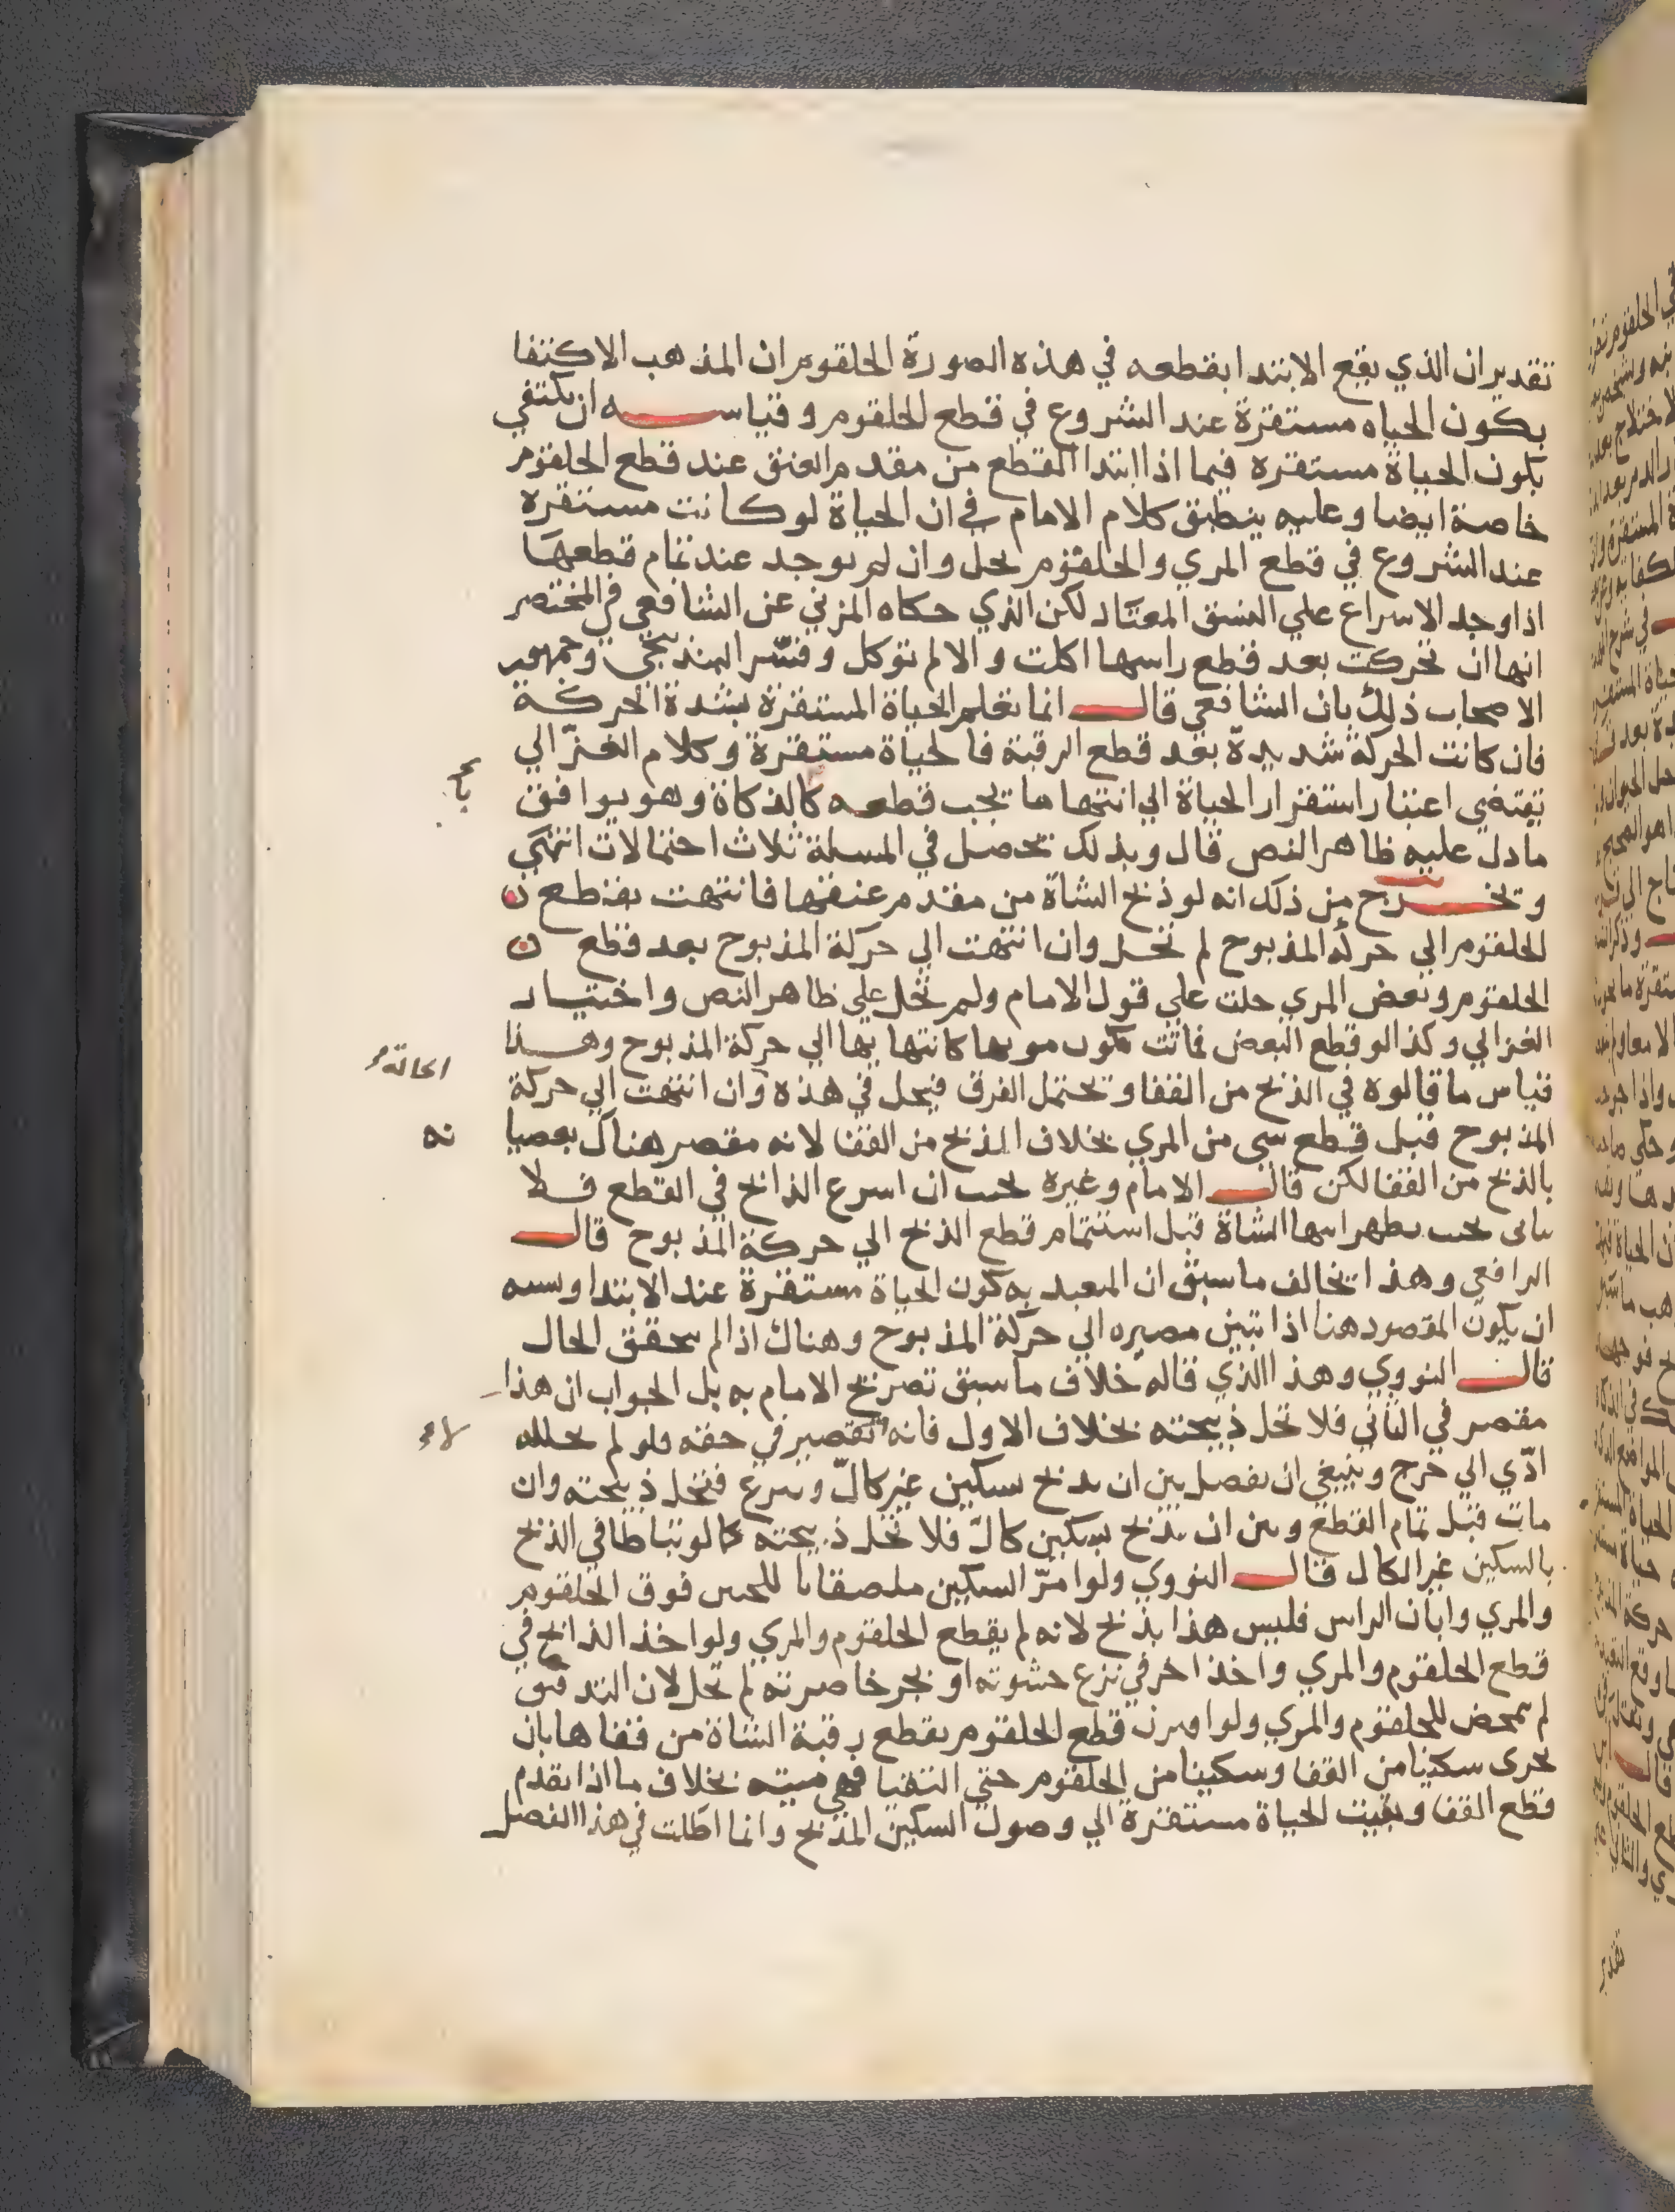 تقدير ان الذي يقع الابتدا بقطعه في هذه الصورة الحلقوم ان المذهب الاكتفا
بكون الحياه مستقرة عند الشروع في قطع الحلقوم وقياسه ان يكتفي
بكون الحياة مستقره فيما اذا ابتدا القطع من مقدم العنق عند قطع الحلقوم
خاصة ايضا وعليه ينطبق كلام الامام في ان الحياة لو كانت مستقره
عند الشروع في قطع المري والحلقوم يحل وان لم يوجد عند تمام قطعها
اذا وجد الاسراع علي النسق المعتاد لكن الذي حكاه المزني عن الشافعي في المختصر
انها ان تحركت بعد قطع راسها اكلت والا لم توكل وفسّر البندنيجي وجمهور
الاصحاب ذلك بان الشافعي قال انما تعلم الحياة المستقرة بشدة الحركة
فان كانت الحركة شديدة بعد قطع الرقبة فالحياة مستقرة وكلام الغزّالي
يقتضي اعتبار استقرار الحياة الي انتهاء ما يجب قطعه كالذكاة وهو يوافق
ما دل عليه ظاهر النص قال وبذلك تحصل في المسلة ثلاث احتمالات انتهي
وتخرج من ذلك انه لو ذبح الشاة من مقدم عنقها فانتهت بقطع
الحلقوم الي حركة المذبوح لم تحل وان انتهت الي حركة المذبوح بعد قطع
الحلقوم وبعض المري حلت علي قول الامام ولم تحل علي ظاهر النص واختيار
الغزالي وكذا لو قطع البعض فماتت تكون موتها كانتهائها الي حركة المذبوح وهذا
قياس ما قالوه في الذبح من القفا ويحتمل الفرق فيحل في هذه وان انتهت الي حركة
الحالة
المذبوح قبل قطع شي من المري بخلاف الذبح من القفا لانه مقصر هناك بعصيا
نه
بالذبح من القفا لكن قال الامام وغيره يجب ان اسرع الذابح في القطع فلا
يتاني بحيث يظهر انتها الشاة قبل استتمام قطع الذبح الي حركة المذبوح قال
الرافعي وهذا يخالف ما سبق ان المتعبد به كون الحياة مستقرة عند الابتدا ويشبه
ان يكون المقصود هنا اذا تبين مصيره الي حركة المذبوح وهناك اذا لم يتحقق الحال
قال النووي وهذا الذي قاله خلاف ما سبق تصريح الامام به بل الجواب ان هذا
مقصر في الثاني فلا تحل ذبيحته بخلاف الاول فانه لا تقصير في حقه فلو لم نحلله
ادّي الي حرج وينبغي ان يفصل بين ان يذبح بسكين غير كالّ ويسرع فتحل ذبيحته وان
مات قبل تمام القطع وبين ان يذبح بسكين كالّ فلا تحل ذبيحته كما لو تباطا في الذبح
بالسكين غير الكال قال النووي ولو امرّ السكين ملصقا باللحيين فوق الحلقوم
والمري وابان الراس فليس هذا بذبح لانه لم يقطع الحلقوم والمري ولو اخذ الذابح في
قطع الحلقوم والمري واخذ اخر في نزع حشوته او بجر خاصرته لم تحل لان التدفيق
لم يتمحض للحلقوم والمري ولو اقترن قطع الحلقوم بقطع رقبة الشاة من قفاها بان
يجري سكينا من القفا وسكينا من الحلقوم حتي التقيا فهي ميته بخلاف ما اذا تقدم
قطع القفا وبقيت الحياة مستقرة الي وصول السكين المذبح وانما اطلت في هذا الفصل